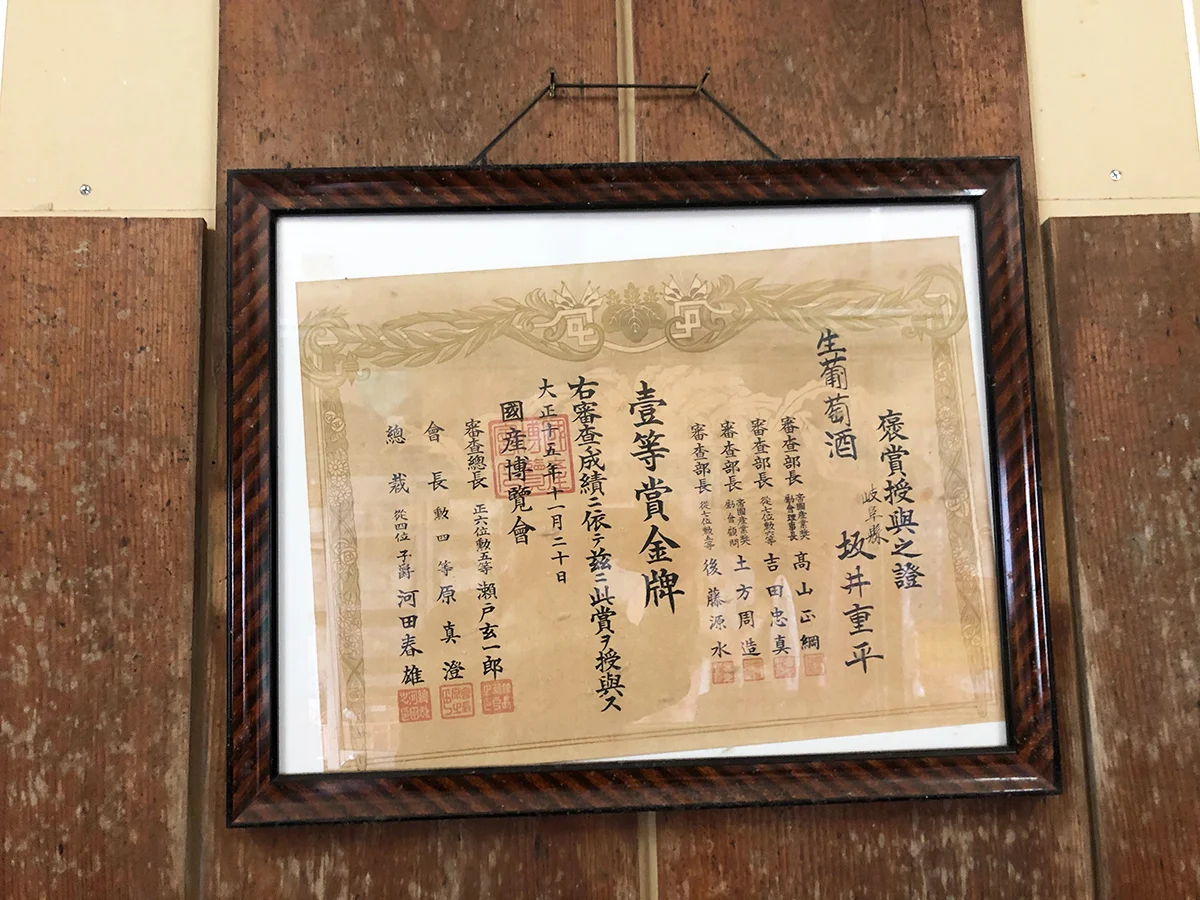 褒賞授與之證
岐阜縣
坂井重平
生葡萄酒
審査部長 帝國産業奬勵會理事長 高山正綱
審査部長 從七位勲六等 吉田忠真
審査部長 帝國産業奬勵會顧問 土方周造
審査部長 從七位勲七等 後藤源水
壹等賞金牌
右審査ノ成績ニ依テ茲ニ此賞ヲ授與ス
大正十五年十一月二十日
國産博覽會
審査總長 正六位勲五等 瀬戸玄一郎
會長 勲四等 原真澄
總裁 從四位子爵 河田春雄